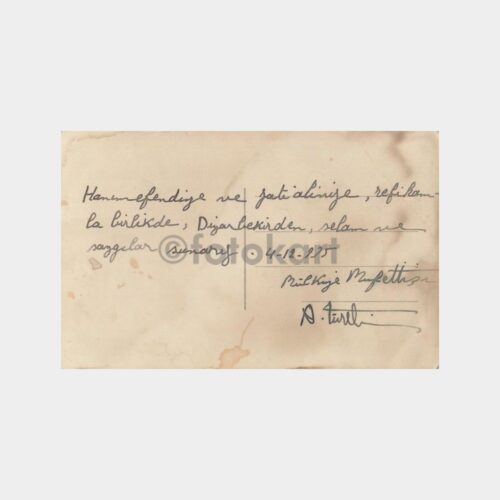 Hanımefendiye ve zatıalinize, refikam-
la birlikde, Diyarbekirden, selam ve
saygılar sunarız
©fotokart
4-12-
Mülkiye Müfettişi
A.